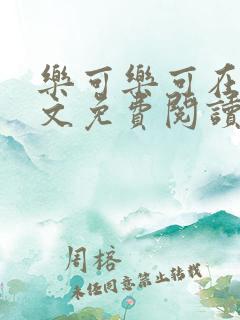 樂可樂可在
文免費閱讀
周榕
未经同意禁止转载